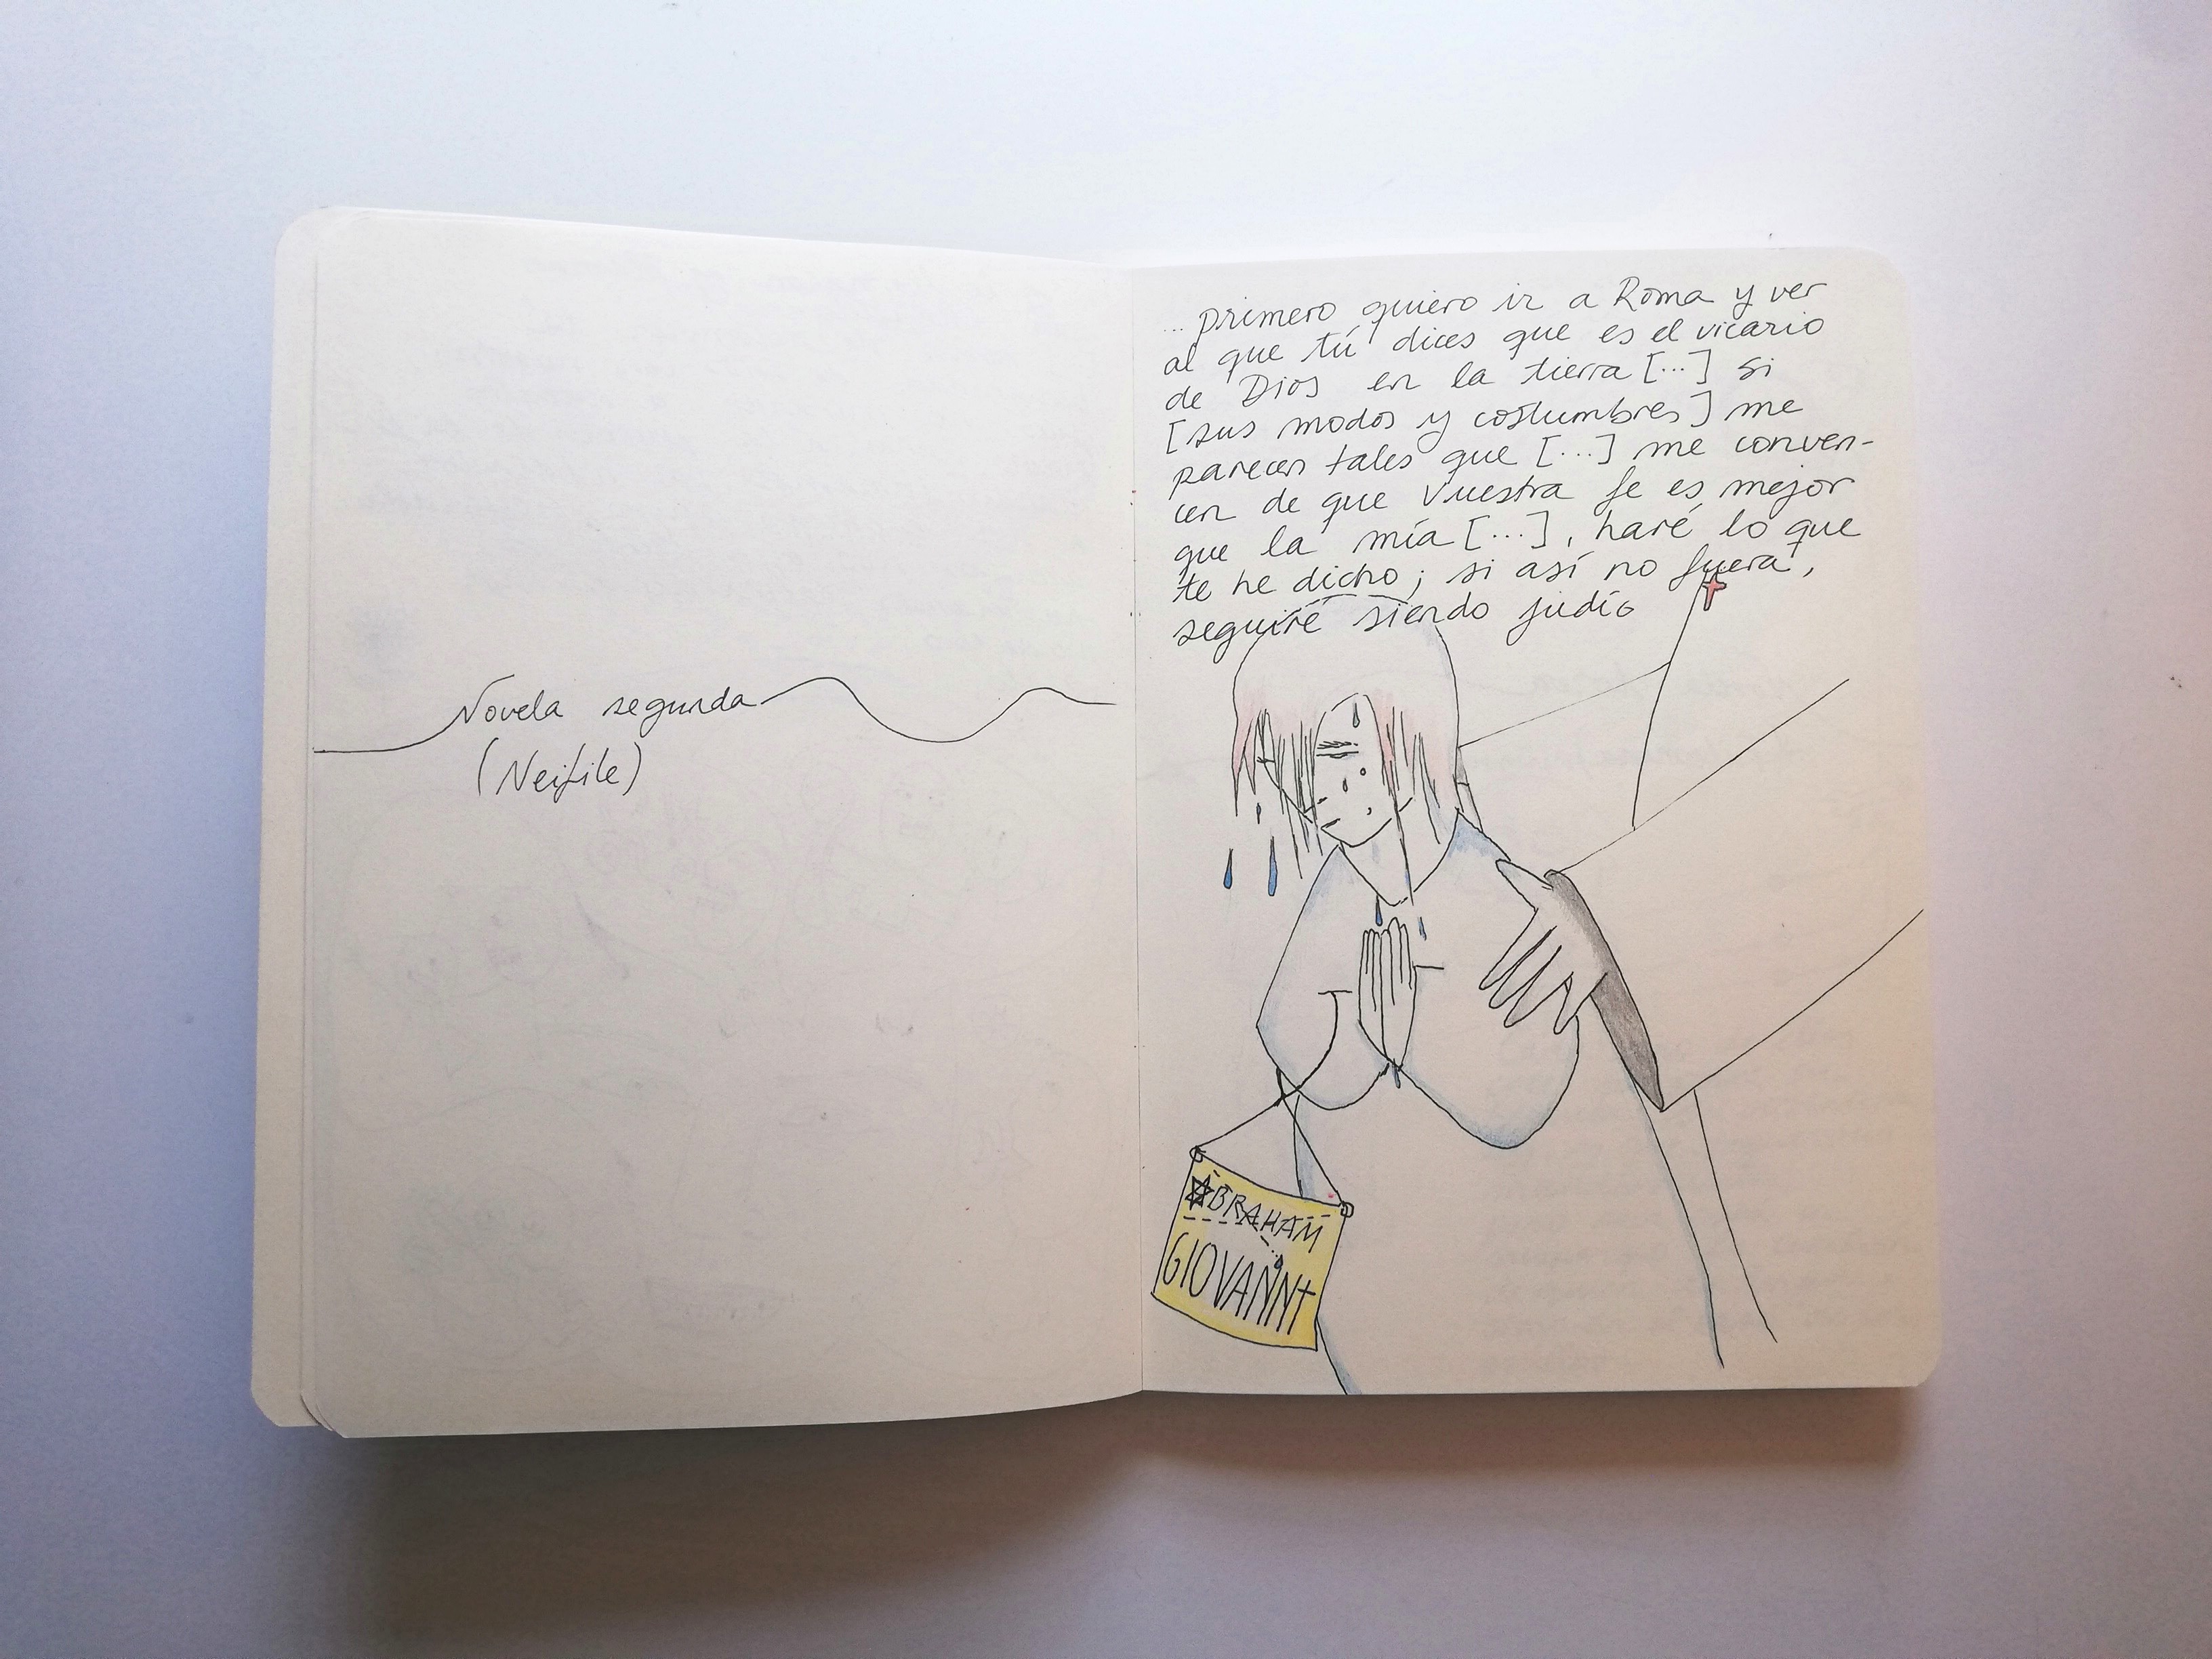 Novela segunda
(Neifile)
... primero quiero ir a Roma y ver
al que tú dices que es el vicario
de Dios en la tierra [...] si
[sus modos y costumbres] me
parecen tales que [...] me conven-
cen de que vuestra fe es mejor
que la mía [...], haré lo que
te he dicho; si así no fuera,
seguiré siendo judío
✡BRAHAM
GIOVANNI